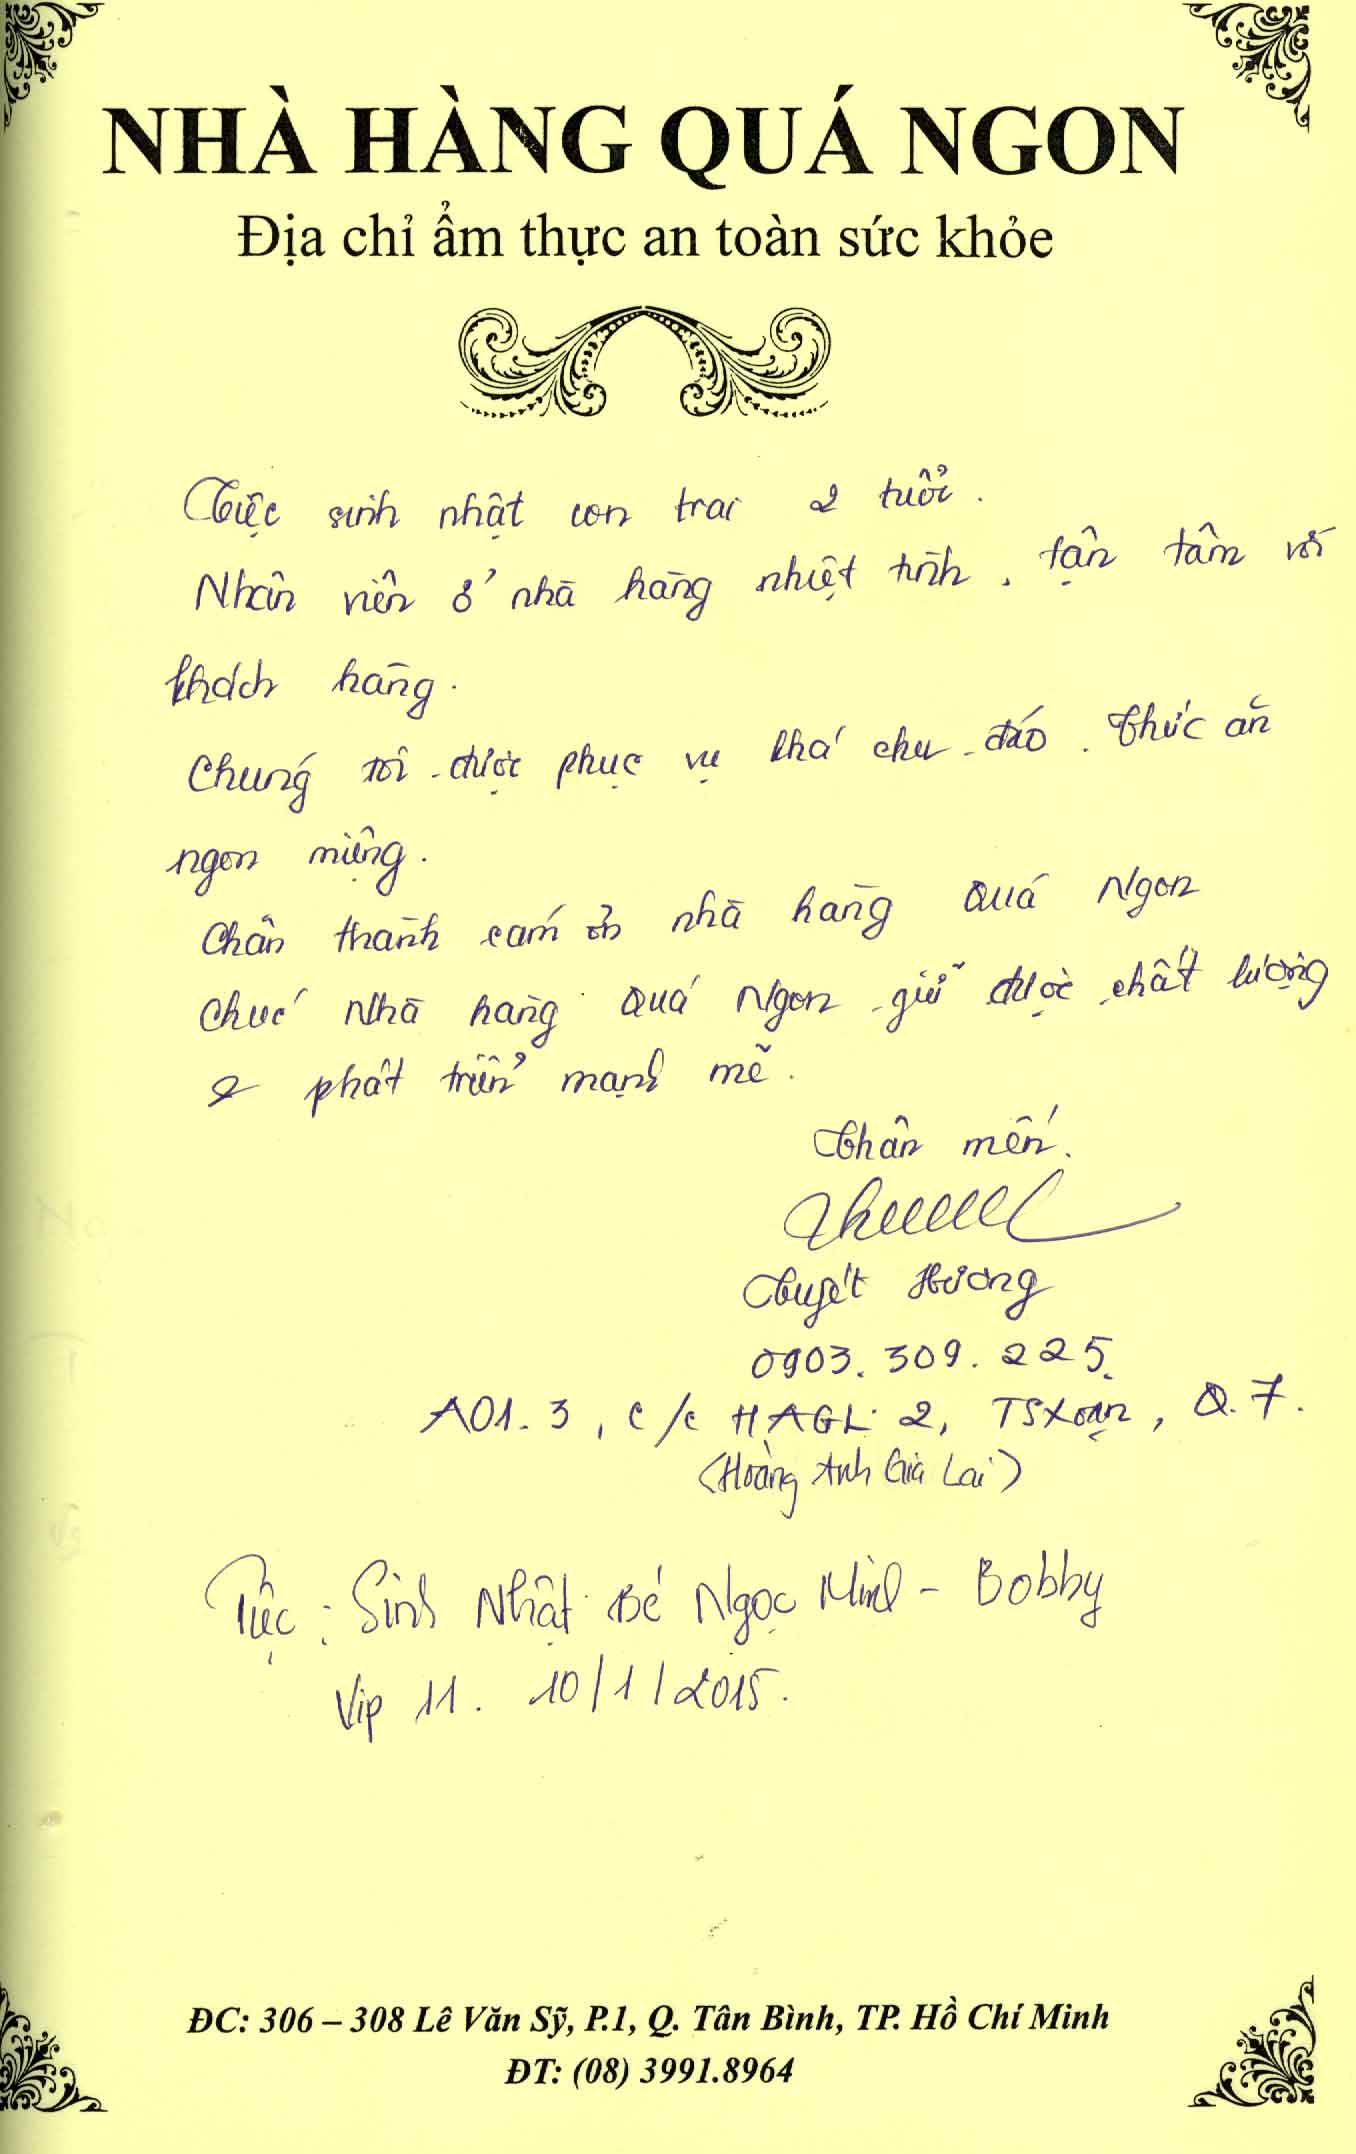 NHÀ HÀNG QUÁ NGON
Địa chỉ ẩm thực an toàn sức khỏe
Tiệc sinh nhật con trai 2 tuổi.
Nhân viên ở nhà hàng nhiệt tình, tận tâm với
khách hàng.
Chúng tôi được phục vụ khá chu đáo. Thức ăn
ngon miệng.
Chân thành cám ơn nhà hàng Quá Ngon
Chúc Nhà hàng Quá Ngon giữ được chất lượng
& phát triển mạnh mẽ.
Thân mến.
Tuyết Hương
0903.309.225.
A01.3, c/c HAGL 2, TSXoạn, Q.7.
(Hoàng Anh Gia Lai)
Tiệc: Sinh Nhật Bé Ngọc Minh - Bobby
Vip 11. 10/1/2015.
ĐC: 306 – 308 Lê Văn Sỹ, P.1, Q. Tân Bình, TP. Hồ Chí Minh
ĐT: (08) 3991.8964